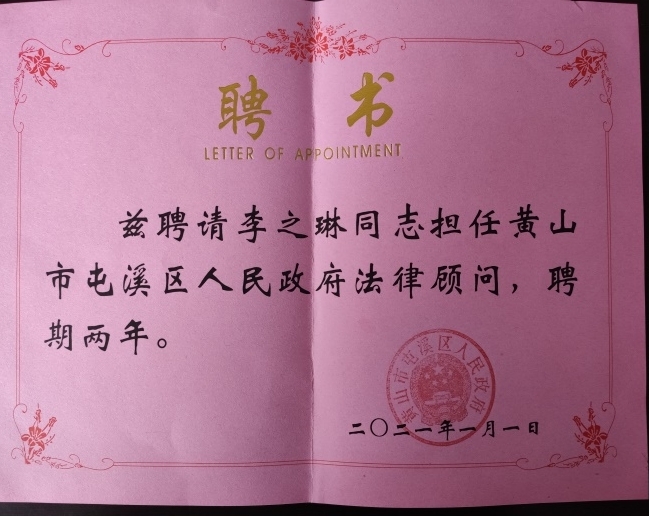 聘书
LETTER OF APPOINTMENT
兹聘请李之琳同志担任黄山
市屯溪区人民政府法律顾问，聘
期两年。
黄山市屯溪区人民政府
二〇二一年一月一日